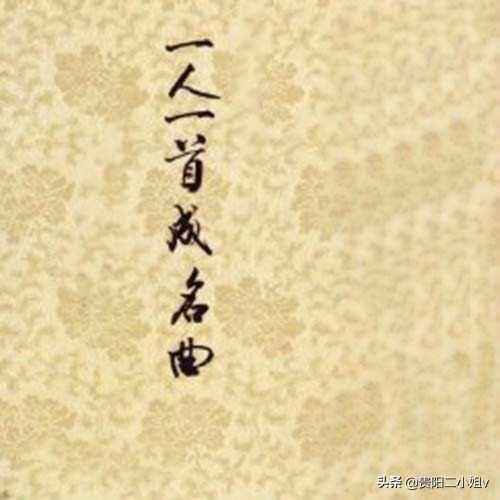 一人一首成名曲
头条 @贵阳二小姐v